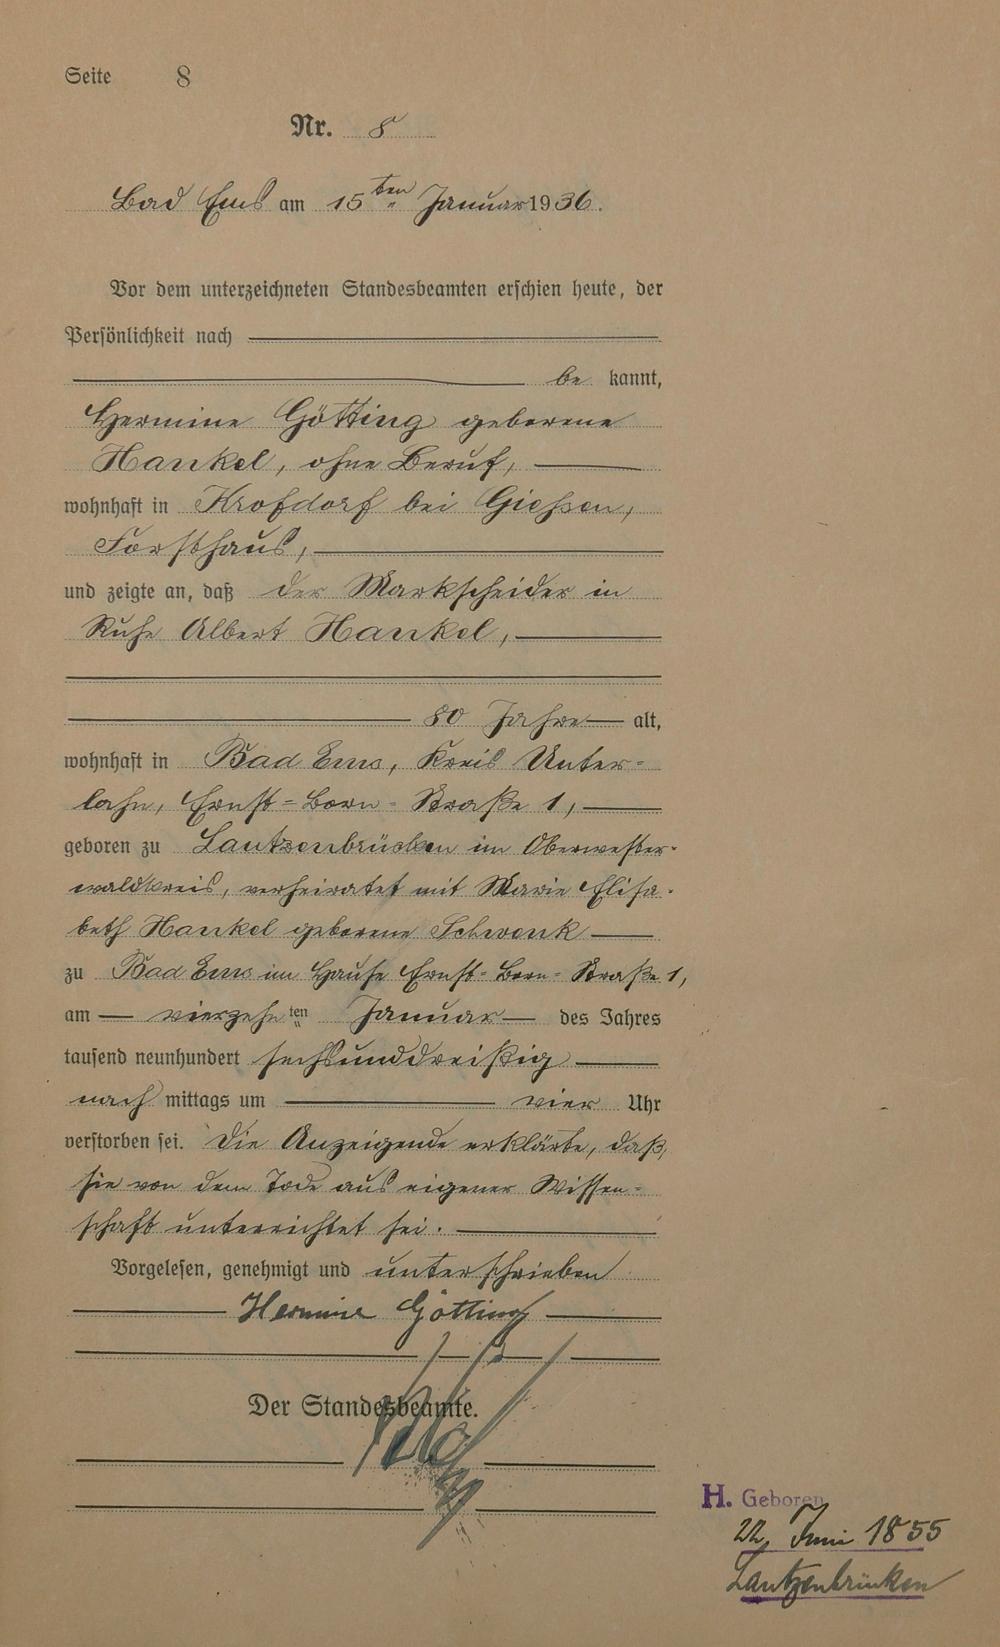 Seite 8
Nr. 8
Bad Ems am 15ten Januar 1936.
Vor dem unterzeichneten Standesbeamten erschien heute, der
Persönlichkeit nach
be kannt,
Hermine Götting geborene
Hankel, ohne Beruf,
wohnhaft in Krofdorf bei Giessen,
Forsthaus,
und zeigte an, daß der Markscheider in
Ruhe Albert Hankel,
80 Jahre alt,
wohnhaft in Bad Ems, Kreis Unter-
lahn, Ernst-Born-Straße 1,
geboren zu Lautzenbrücken im Oberwester-
waldkreis, verheiratet mit Marie Elisa-
beth Hankel geborene Schwenk
zu Bad Ems im Hause Ernst-Born-Straße 1,
am vierzehnten Januar des Jahres
tausend neunhundert sechsunddreißig
nach mittags um vier Uhr
verstorben sei. Die Anzeigende erklärte, daß
sie von dem Tode aus eigener Wissen-
schaft unterrichtet sei.
Vorgelesen, genehmigt und unterschrieben
Hermine Götting
Der Standesbeamte.
H. Geboren
22. Juni 1855
Lautzenbrücken